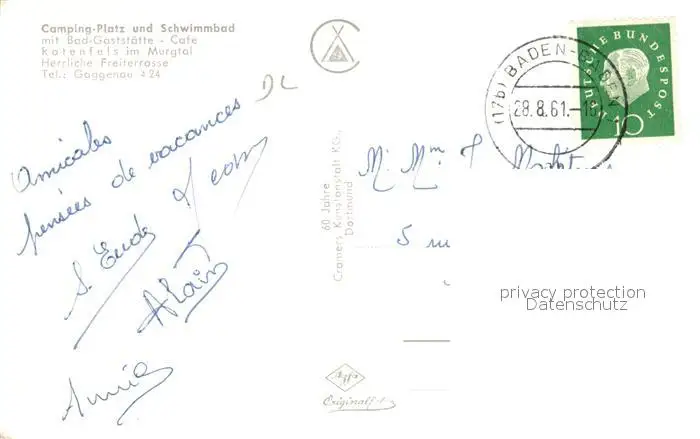 Camping-Platz und Schwimmbad
mit Bad-Gaststätte - Cafe
Rotenfels im Murgtal
Herrliche Freiterrasse
Tel.: Gaggenau 424
Amicales
pensées de vacances
Alain
Annie
60 Jahre
Cramers Kunstanstalt KG.,
Dortmund
Agfa
Originalfoto
(17b) BADEN-BADEN
28.8.61.-18
DEUTSCHE BUNDESPOST
10
M. Mme
5 ru
privacy protection
Datenschutz